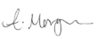 A. Morgan